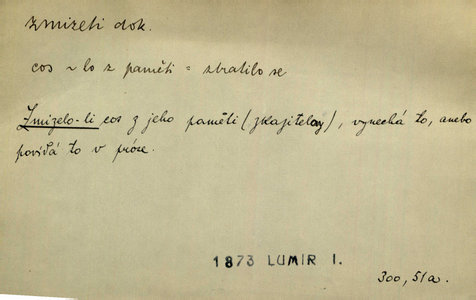 zmizeti dok.
cos ~ lo z paměti = ztratilo se
Zmizelo-li cos z jeho paměti (zkazitelovy), vynechá to, anebo
povídá to v próze.
1873 LUMIR I.
300, 51a.